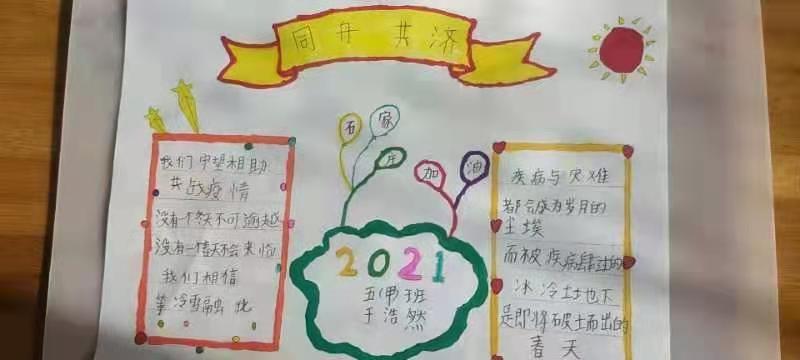 同舟共济
我们守望相助
共战疫情
没有一个冬天不可逾越
没有一个春天不会来临
我们相信
等冷雪融化
石家庄加油
2021
五(甲)班
于浩然
疾病与灾难
都会成为岁月的
尘埃
而被疾病肆过的
冰冷土地下
是即将破土而出的
春天